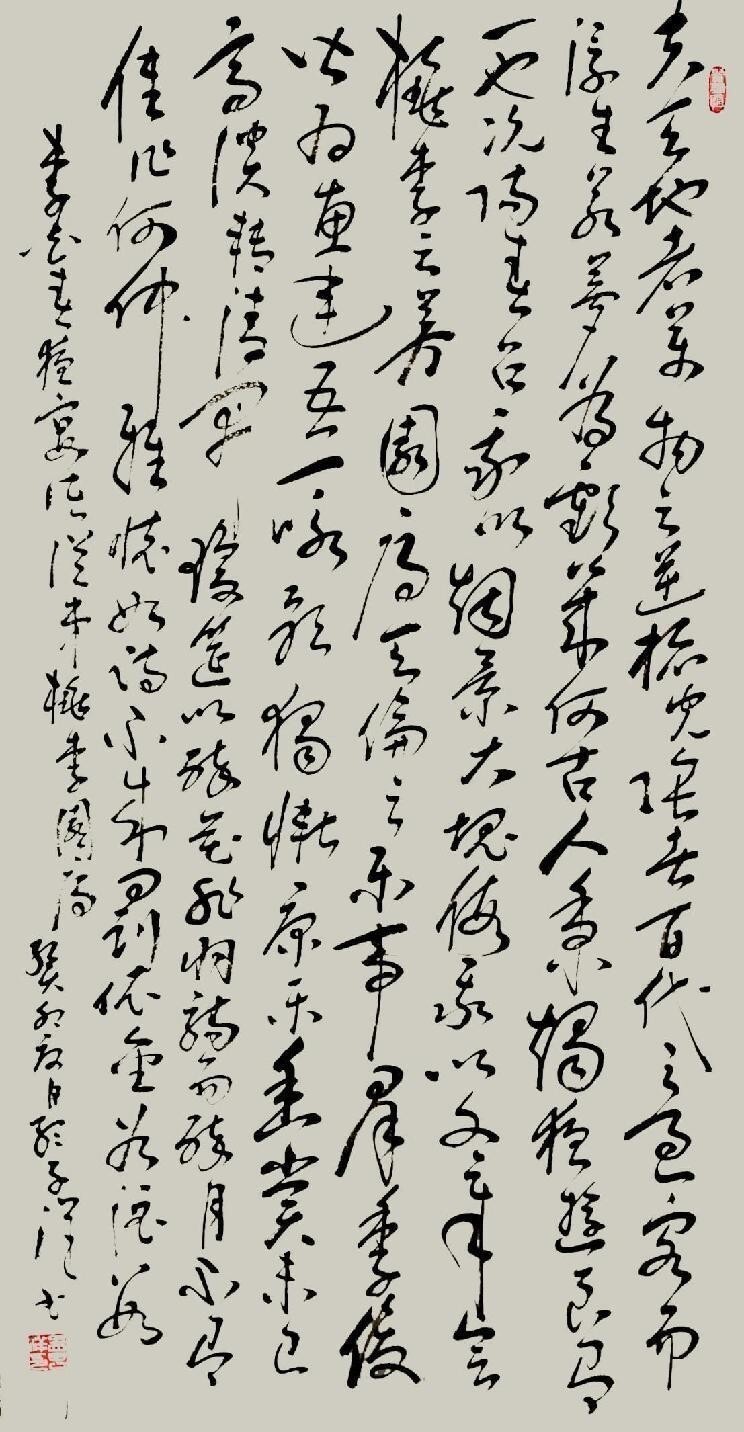 夫天地者萬物之逆旅光陰者百代之過客而
浮生若夢為歡幾何古人秉燭夜遊良有
以也況陽春召我以煙景大塊假我以文章會
桃李之芳園序天倫之樂事群季俊
皆為惠連吾人詠歌獨慚康樂幽賞未已
高談轉清開瓊筵以醉花飛羽觴而醉月不有
佳作何伸雅懷如詩不成罰依金谷酒數
李白春夜宴從弟桃李園序癸卯夏月書